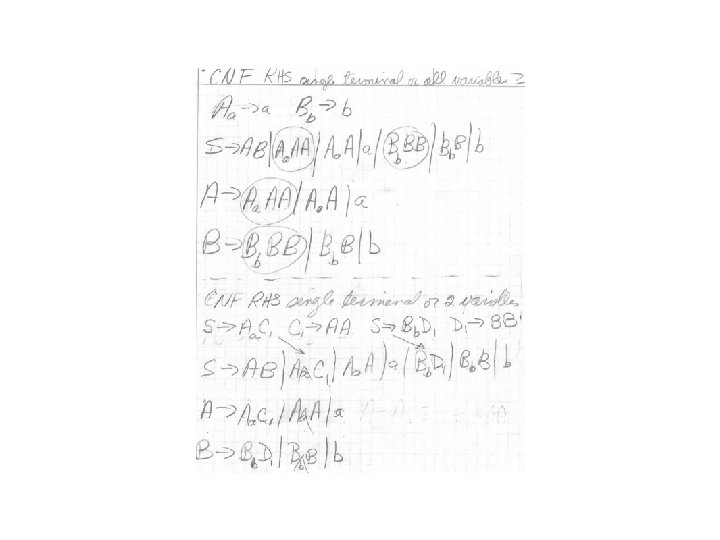 CNF RHS single terminal or all variables 2
Aa→a Bb→b
S→AB|AaAA|AaA|a|BbBB|BbB|b
A→AaAA|AaA|a
B→BbBB|BbB|b
CNF RHS single terminal or 2 variables
S→AaC1 C1→AA S→BbD1 D1→BB
S→AB|AaC1|AaA|a|BbD1|BbB|b
A→AaC1|AaA|a
B→BbD1|BbB|b